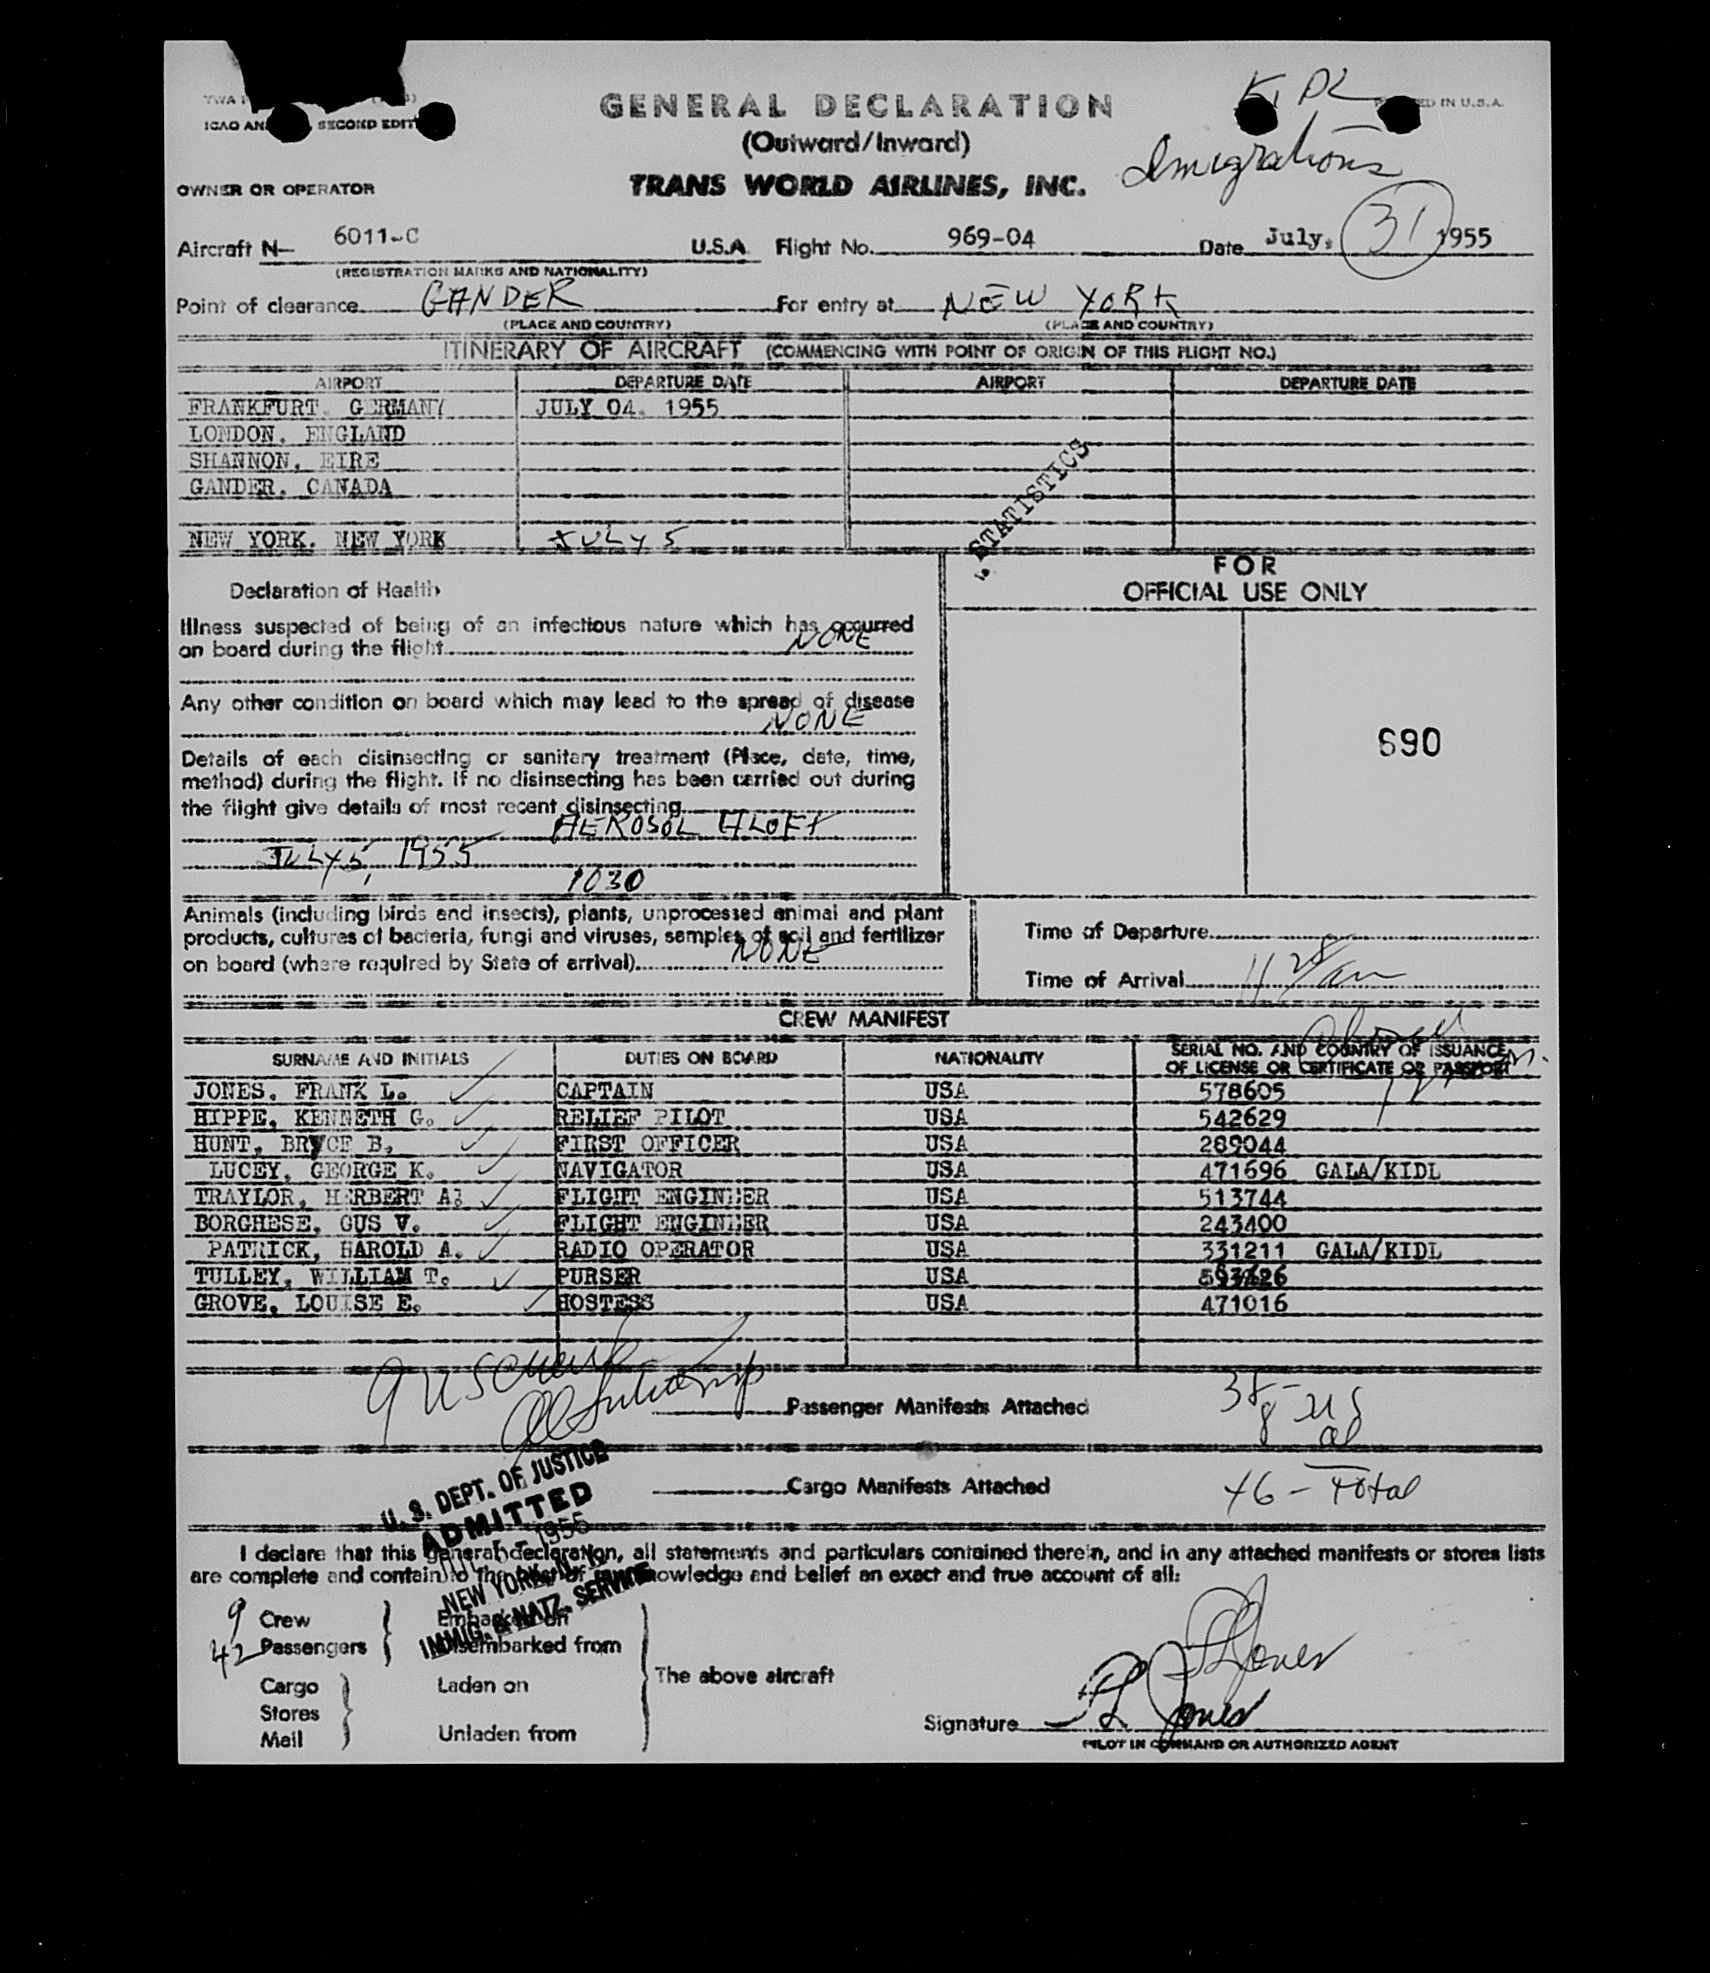 GENERAL DECLARATION
(Outward/Inward)
TRANS WORLD AIRLINES, INC.
TWA
ICAO AN SECOND EDIT
ED IN U.S.A.
Imigrations
OWNER OR OPERATOR
Aircraft N- 6011-C U.S.A. Flight No. 969-04 Date July, 31 1955
(REGISTRATION MARKS AND NATIONALITY)
Point of clearance GANDER For entry at NEW YORK
(PLACE AND COUNTRY) (PLACE AND COUNTRY)
ITINERARY OF AIRCRAFT (COMMENCING WITH POINT OF ORIGIN OF THIS FLIGHT NO.)
AIRPORT DEPARTURE DATE AIRPORT DEPARTURE DATE
FRANKFURT, GERMANY JULY 04, 1955
LONDON, ENGLAND
SHANNON, EIRE
GANDER, CANADA
NEW YORK, NEW YORK JULY 5
STATISTICS
FOR
OFFICIAL USE ONLY
690
Declaration of Health
Illness suspected of being of an infectious nature which has occurred
on board during the flight NONE
Any other condition on board which may lead to the spread of disease
NONE
Details of each disinsecting or sanitary treatment (Place, date, time,
method) during the flight. If no disinsecting has been carried out during
the flight give details of most recent disinsecting
AEROSOL ALOFT
JULY 5, 1955
1030
Animals (including birds and insects), plants, unprocessed animal and plant
products, cultures of bacteria, fungi and viruses, samples of soil and fertilizer
on board (where required by State of arrival) NONE
Time of Departure
Time of Arrival 11 28 am
CREW MANIFEST
SURNAME AND INITIALS DUTIES ON BOARD NATIONALITY SERIAL NO. AND COUNTRY OF ISSUANCE
OF LICENSE OR CERTIFICATE OR PASSPORT
JONES, FRANK L. CAPTAIN USA 578605
HIPPE, KENNETH G. RELIEF PILOT USA 542629
HUNT, BRYCE B. FIRST OFFICER USA 289044
LUCEY, GEORGE K. NAVIGATOR USA 471696 GALA/KIDL
TRAYLOR, HERBERT A. FLIGHT ENGINEER USA 513744
BORGHESE, GUS V. FLIGHT ENGINEER USA 243400
PATRICK, HAROLD A. RADIO OPERATOR USA 331211 GALA/KIDL
TULLEY, WILLIAM T. PURSER USA
GROVE, LOUISE E. HOSTESS USA 471016
9 US
Passenger Manifests Attached 38 - US
8 al
Cargo Manifests Attached 46 - Total
U. S. DEPT. OF JUSTICE
ADMITTED
NEW YORK, N. Y.
IMMIG. & NATZ. SERVICE
I declare that this general declaration, all statements and particulars contained therein, and in any attached manifests or stores lists
are complete and contain to the best of my knowledge and belief an exact and true account of all:
9 Crew Embarked on
42 Passengers Disembarked from
Cargo Laden on The above aircraft
Stores
Mail Unladen from
FL Jones
Signature FL Jones
PILOT IN COMMAND OR AUTHORIZED AGENT